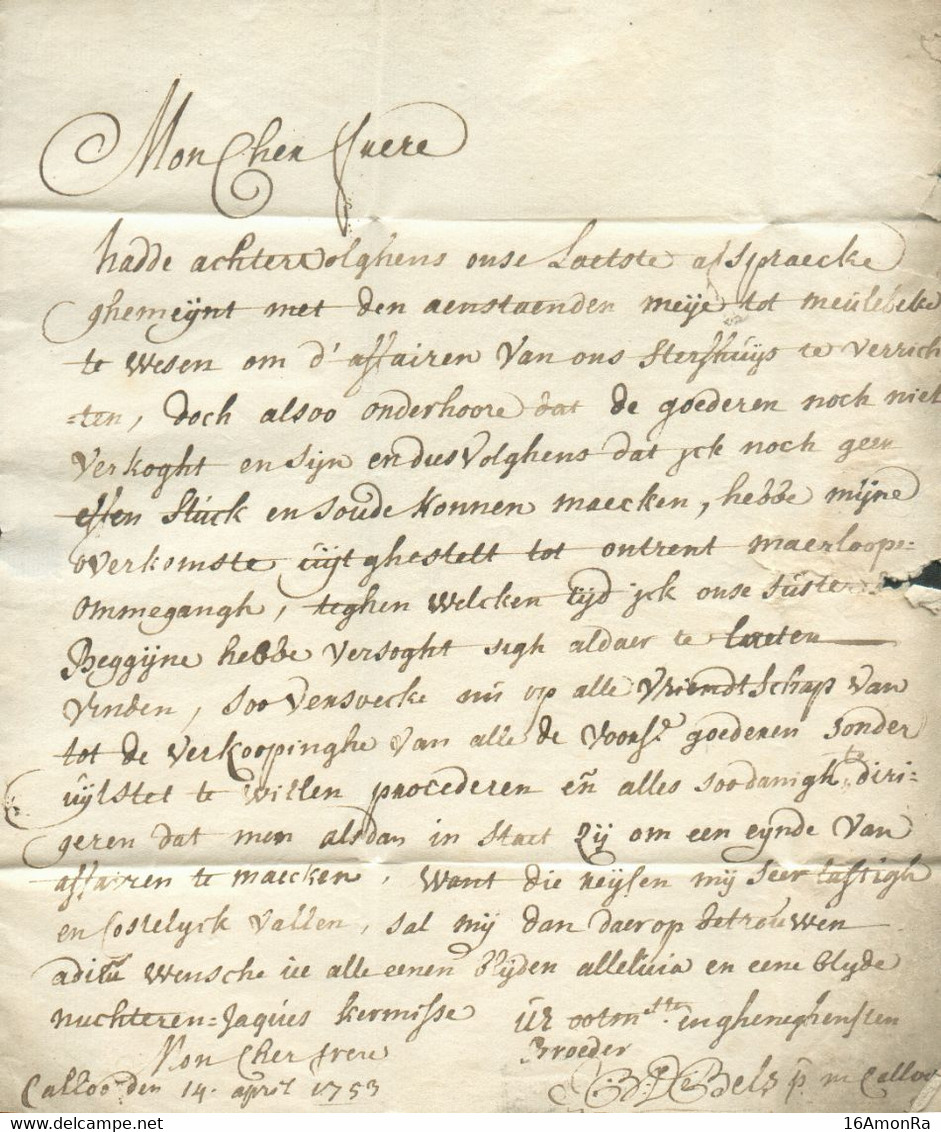 Mon Cher frere
hadde achtervolghens onse Laetste afspraecke
ghemeijnt met den aenstaenden meije tot meulebeke
te wesen om d'affairen van ons sterfhuijs te verrich
=ten, doch alsoo onderhoore dat de goederen noch niet
verkoght en sijn en dus volghens dat jck noch geen
effen stuck en soude konnen maecken, hebbe mijne
overkomste uijtghestelt tot ontrent maerloop=
ommegangh, teghen welcken tijd jck onse suster
Beggijne hebbe versoght sigh aldaer te laeten
vinden, soo versoecke nu op alle vriendtschap van
tot de verkoopinghe van alle de voorse. goederen sonder
uijtstel te willen procederen en̄ alles soodanigh te diri=
geren dat men alsdan in staet zij om een eijnde van
affairen te maecken, want die reijsen mij seer lastigh
en costelyck vallen, sal mij dan daer op betrouwen
adiu wensche ue alle eenen blijden alleluia en eene blyde
nuchteren=Jaques kermisse UE ootmste en gheneghensten
Mon Cher frere Broeder
Calloo den 14. april 1753 Bels p. in Calloo
16AmonRa